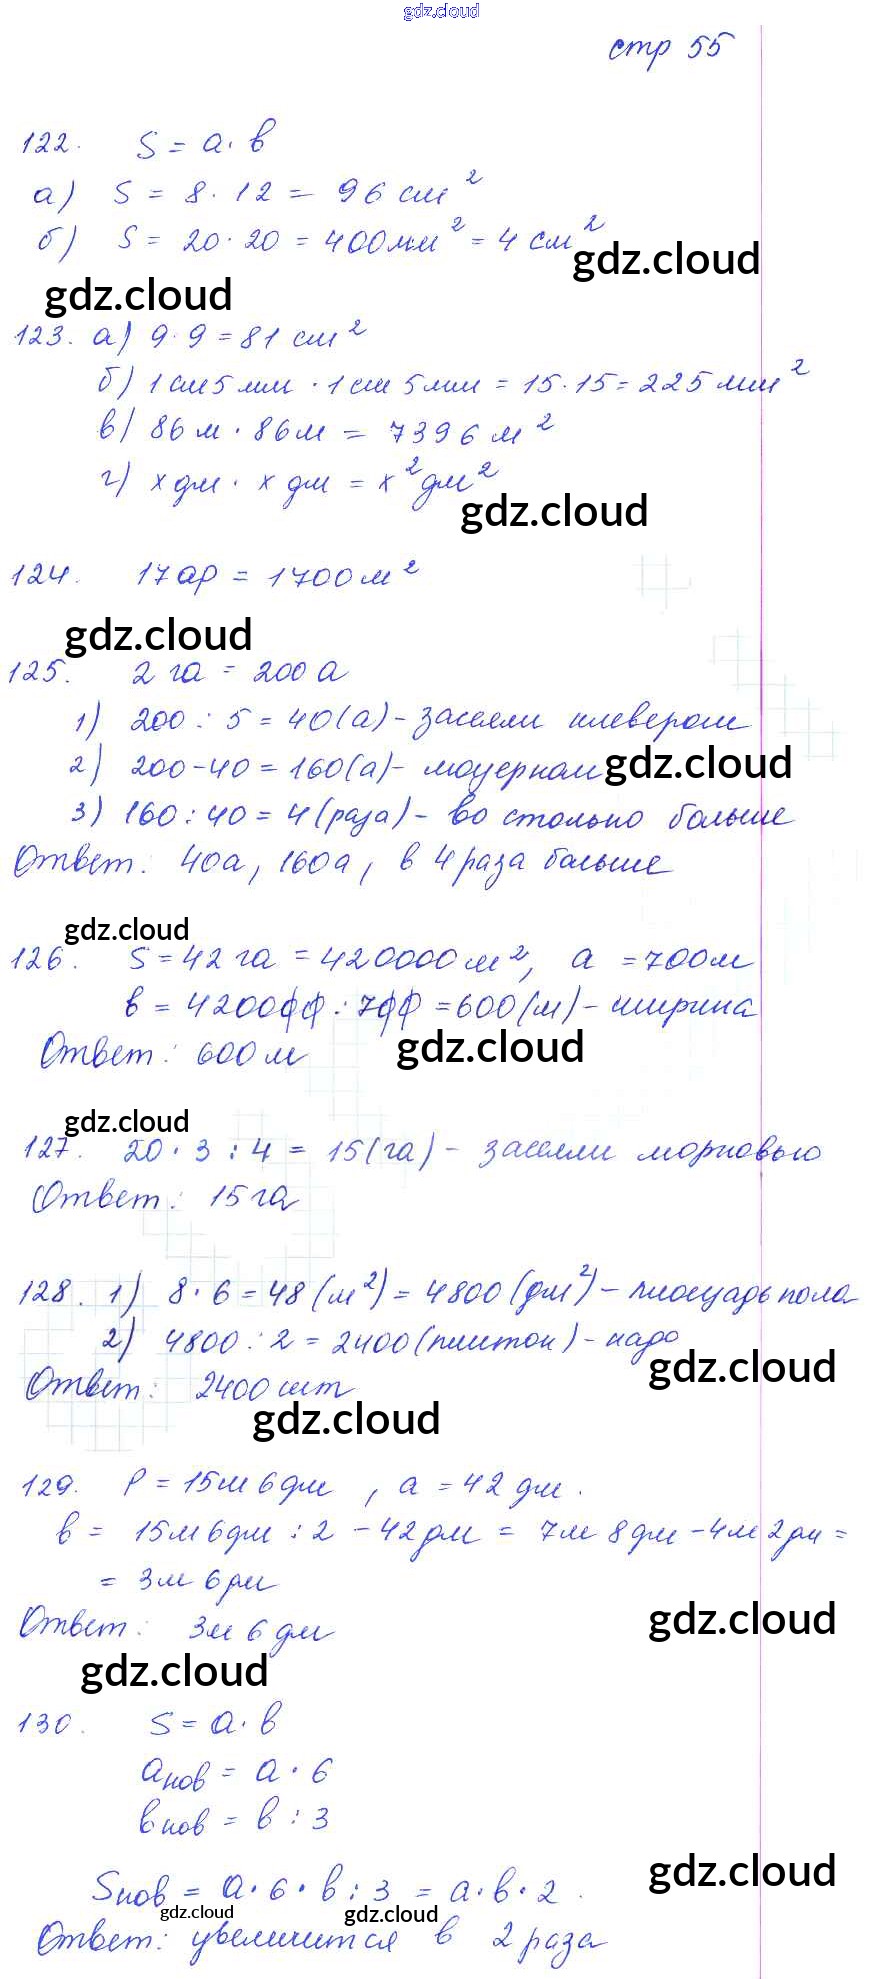 gdz.cloud
стр 55
122. S = a · b
а) S = 8 · 12 = 96 см²
б) S = 20 · 20 = 400 мм² = 4 см²
gdz.cloud
gdz.cloud
123. а) 9 · 9 = 81 см²
б) 1 см 5 мм · 1 см 5 мм = 15 · 15 = 225 мм²
в) 86 м · 86 м = 7396 м²
г) x дм · x дм = x² дм²
gdz.cloud
124. 17 ар = 1700 м²
gdz.cloud
125. 2 га = 200 а
1) 200 : 5 = 40 (а) - засеяли клевером
2) 200 - 40 = 160 (а) - люцерной gdz.cloud
3) 160 : 40 = 4 (раза) - во столько больше
Ответ: 40а, 160а, в 4 раза больше
gdz.cloud
126. S = 42 га = 420000 м², a = 700 м
b = 420000 : 700 = 600 (м) - ширина
Ответ: 600 м gdz.cloud
gdz.cloud
127. 20 · 3 : 4 = 15 (га) - засеяли морковью
Ответ: 15 га
128. 1) 8 · 6 = 48 (м²) = 4800 (дм²) - площадь пола
2) 4800 : 2 = 2400 (плиток) - надо
gdz.cloud
Ответ: 2400 шт
gdz.cloud
129. P = 15 м 6 дм, a = 42 дм.
b = 15 м 6 дм : 2 - 42 дм = 7 м 8 дм - 4 м 2 дм =
= 3 м 6 дм
Ответ: 3 м 6 дм
gdz.cloud
gdz.cloud
130. S = a · b
aнов = a · 6
bнов = b : 3
gdz.cloud
Sнов = a · 6 · b : 3 = a · b · 2.
gdz.cloud gdz.cloud
Ответ: увеличится в 2 раза